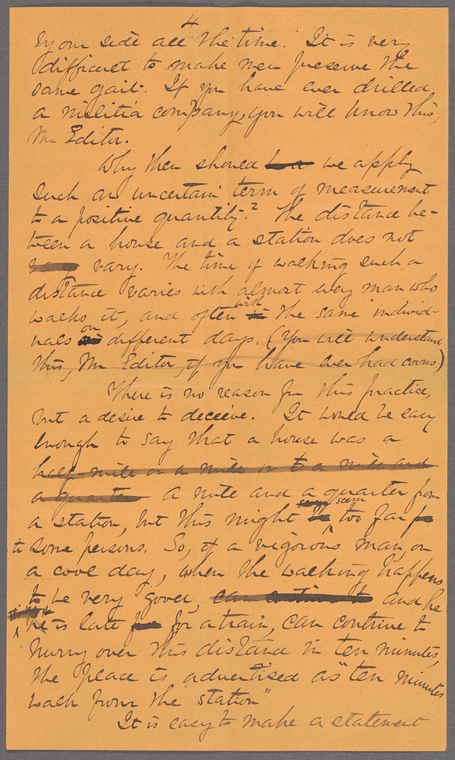 4
by our side all the time. It is very
difficult to make men preserve the
same gait. If you have ever drilled
a militia company, you will know this,
Mr Editor.
Why then should we apply
such an uncertain term of measurement
to a positive quantity? The distance be-
tween a house and a station does not
vary vary. The time of walking such a
distance varies with almost every man who
walks it, and often with in the same individ-
uals on different days. (You will understand
this, Mr Editor, if you have ever had corns.)
There is no reason for this practice,
but a desire to deceive. It would be easy
enough to say that a house was a
half mile or a mile or to a mile and
a quarter a mile and a quarter from
a station, but this might seem too far
to some persons. So, if a vigorous man, on
a cool day, when the walking happens
to be very good, and he
he is late for a train, can contrive to
hurry over this distance in ten minutes,
the place is advertised as "ten minutes
walk from the station"
It is easy to make a statement